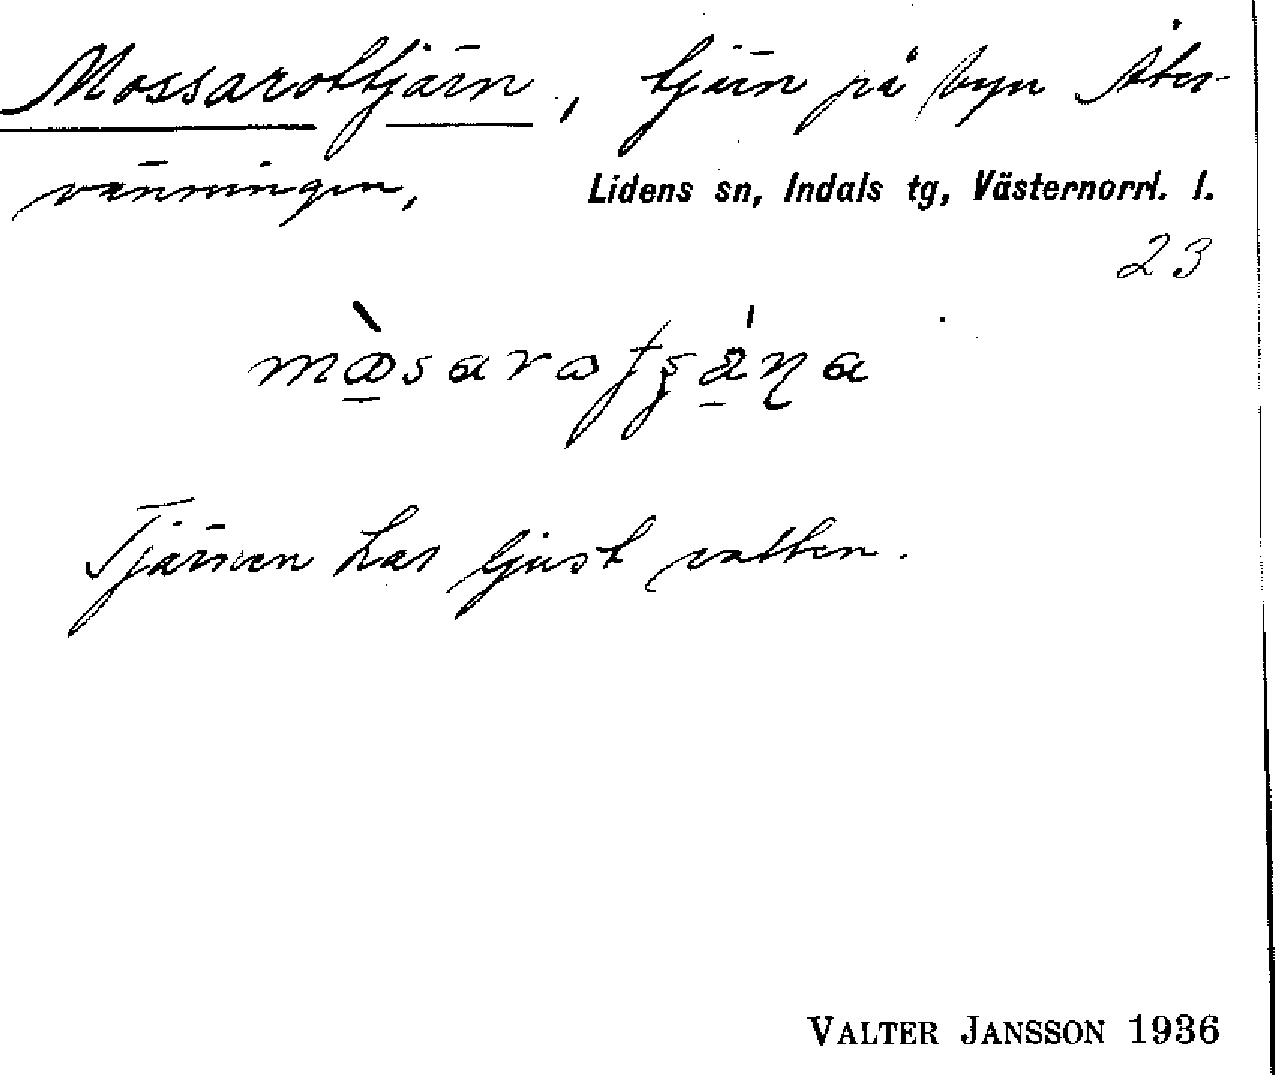 Mossarottjärn, tjärn på byn Åter-
vänningen, Lidens sn, Indals tg, Västernorrl. l.
23
Tjärnen har ljust vatten.
VALTER JANSSON 1936